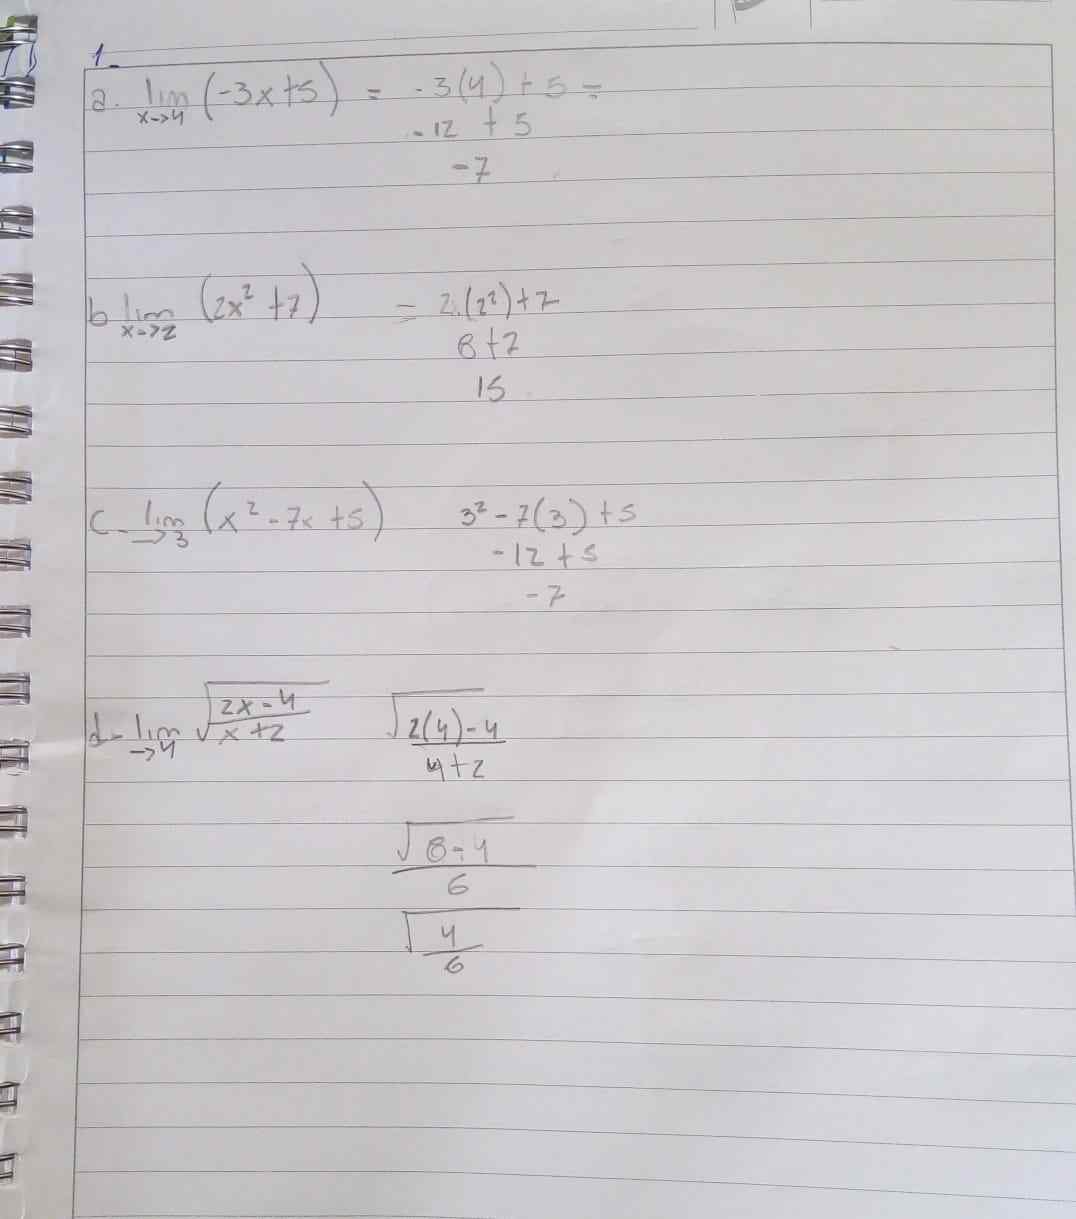 1.
a. lim x->4 (-3x+5) = -3(4) + 5 =
-12 + 5
-7
b lim x->2 (2x² + 7) = 2.(2²)+7
8+7
15
c- lim ->3 (x² - 7x +5) 3² - 7(3) +5
-12 + 5
-7
d- lim ->4 √(2x-4 / x+2) √(2(4)-4 / 4+2)
√8-4 / 6
√(4 / 6)